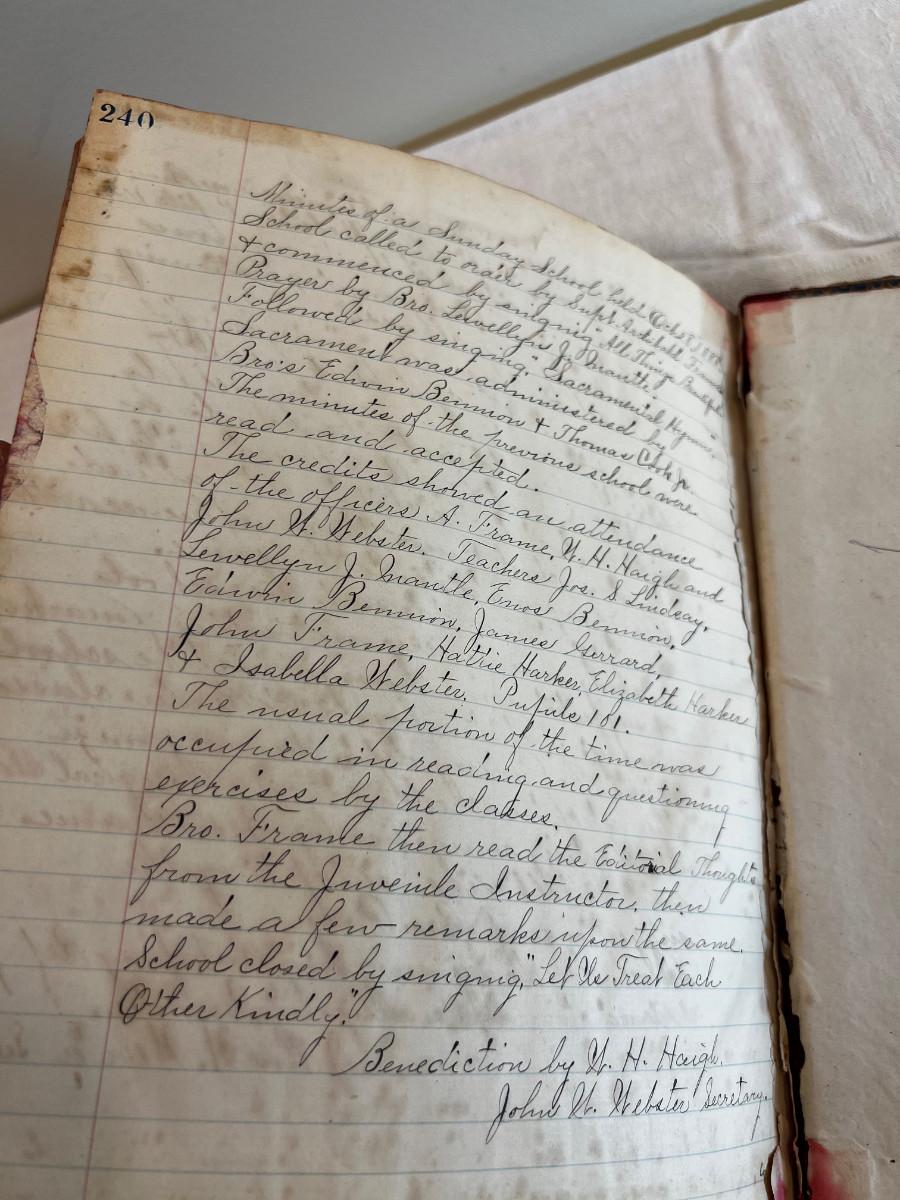 240
Minutes of a Sunday School held Oct.
School called to order by Supt Archibald Frame
& commenced by singing "All Things Beautiful
Prayer by Bro. Lewellyn J. Mantle.
Followed by singing, "Sacramental Hymn."
Sacrament was administered by
Bro's Edwin Bennion & Thomas Cook Jr.
The minutes of the previous school were
read and accepted.
The credits showed an attendance
of the officers A. Frame, W. H. Haigh and
John W. Webster. Teachers Jos. S Lindsay,
Lewellyn J. Mantle, Enos Bennion,
Edwin Bennion, James Gerrard,
John Frame, Hattie Harker, Elizabeth Harker
& Isabella Webster. Pupils 101.
The usual portion of the time was
occupied in reading and questioning
exercises by the classes.
Bro. Frame then read the Editorial Thoughts
from the Juvenile Instructor, then
made a few remarks upon the same.
School closed by singing, "Let Us Treat Each
Other Kindly."
Benediction by W. H. Haigh.
John W. Webster Secretary.